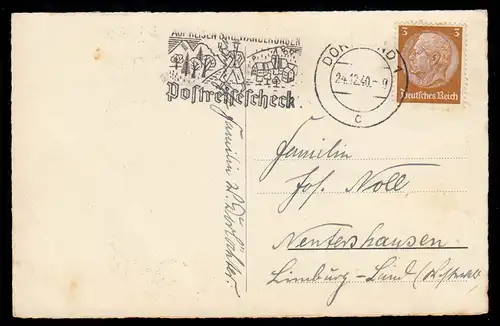 AUF REISEN
Postreisescheck
DORTMUND 1
24.12.40.-9
c
3 3
Deutsches Reich
Familie
Jos. Noll
Nentershausen
Limburg-Land
Familie W.